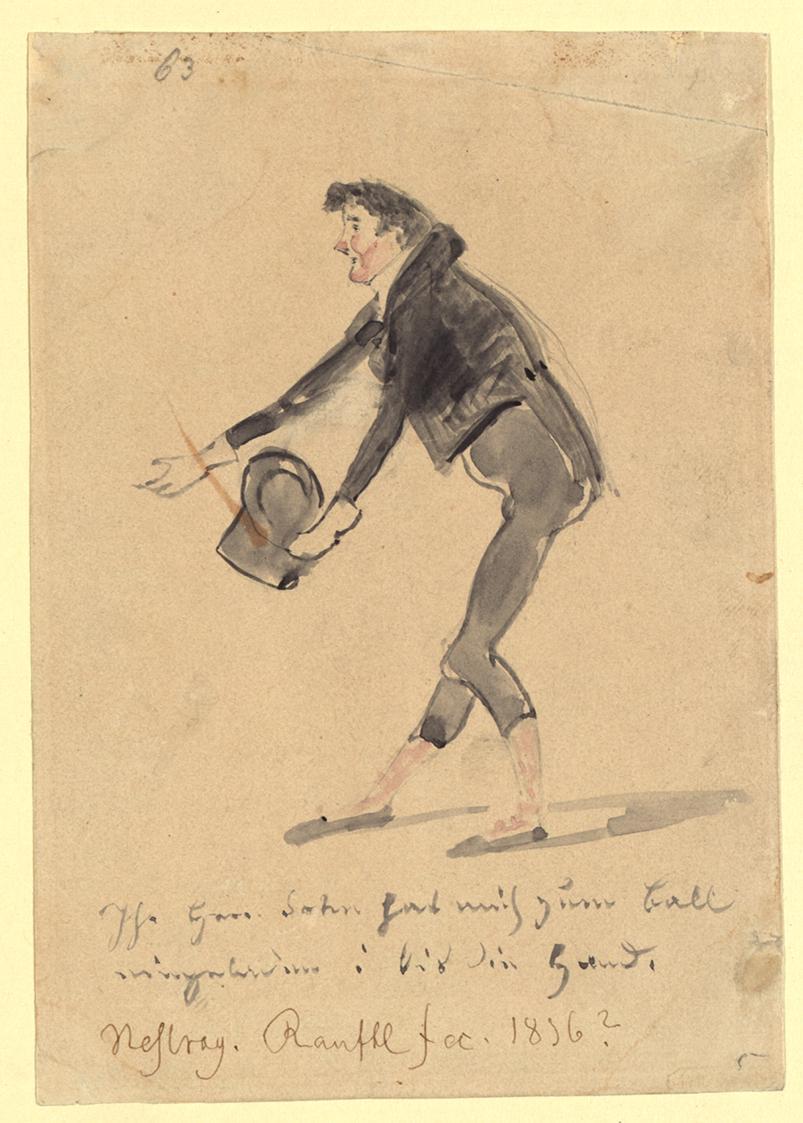 63
Ih. Herr. Sohn hat mich zum Ball
eingeladen i die Hand.
Nestroy. Ranftl fec. 1836?
5